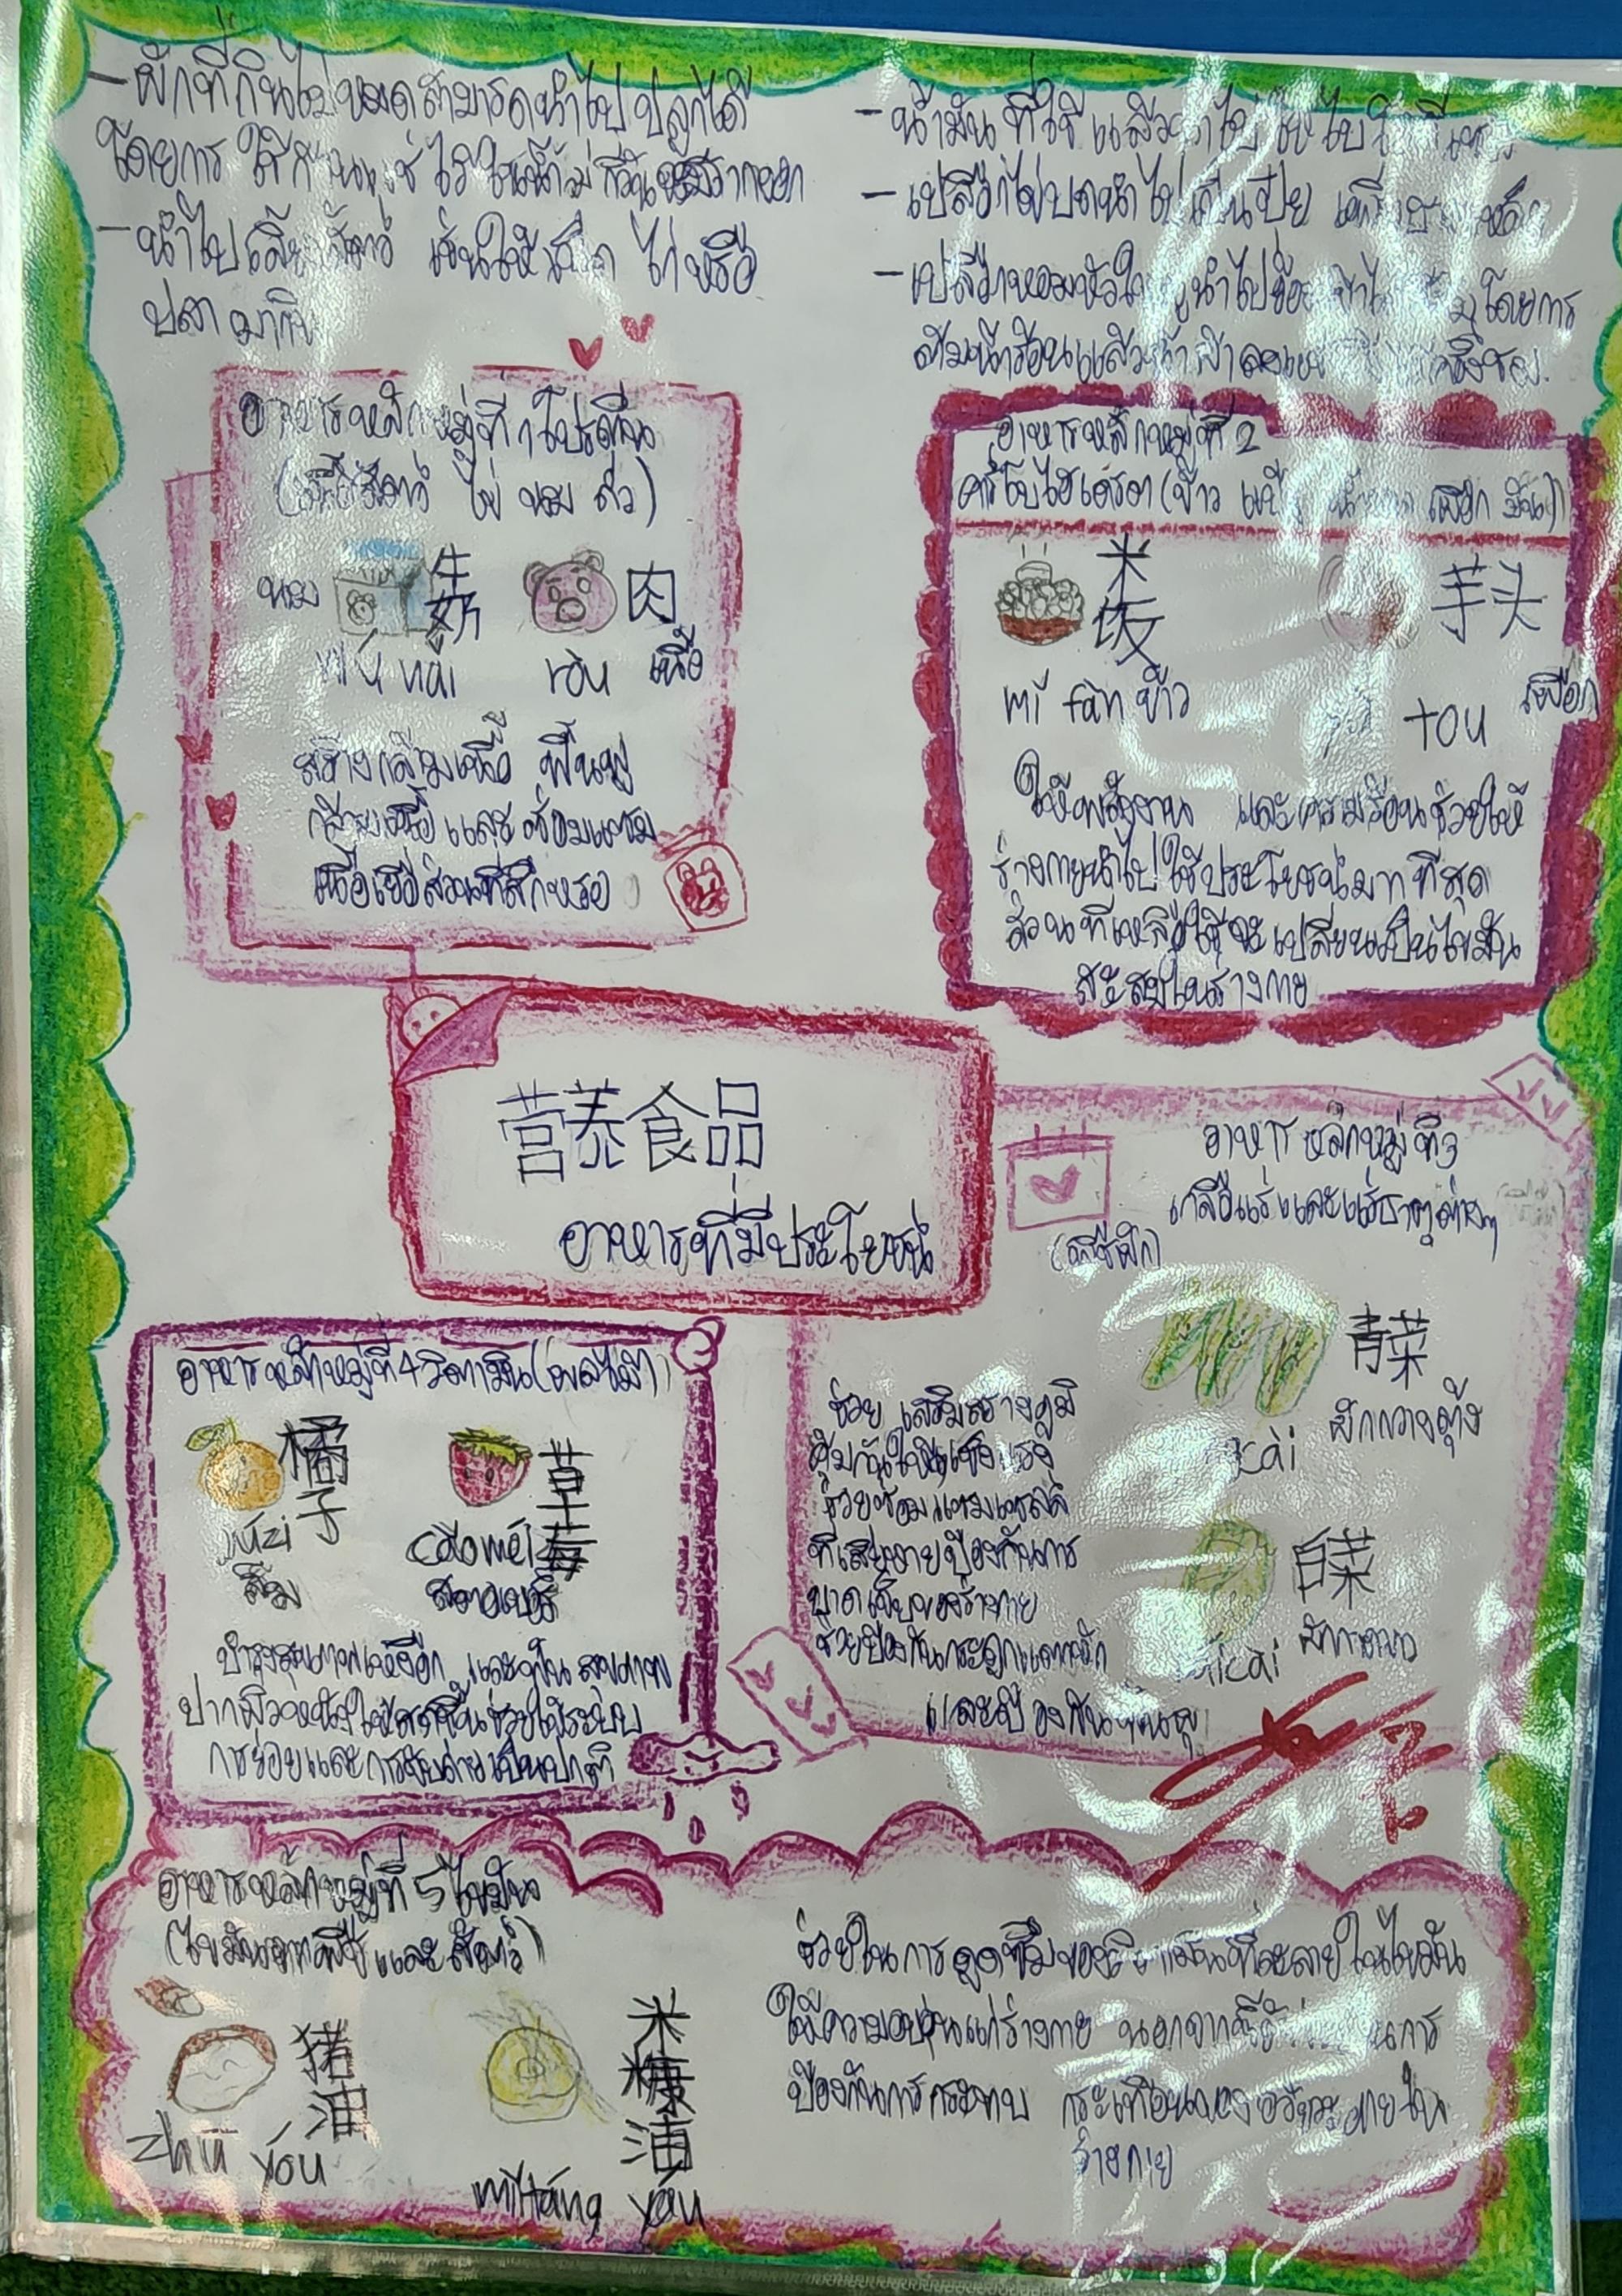 - ผักที่กินไม่หมดสามารถนำไปปลูกได้
โดยการ ใช้ก้านแช่ไว้ในน้ำ
- นำไปเลี้ยงสัตว์ เช่นให้เป็ด ไก่หรือ
ปลา มากิน
- น้ำมันที่ใช้แล้ว
- เปลือกไข่บดนำไปเป็นปุ๋ย
- เปลือกหอมหัวใหญ่นำไปย้อมผ้า โดยการ
ต้มน้ำร้อนแล้ว
อาหารหลักหมู่ที่ 1 โปรตีน
(เนื้อสัตว์ ไข่ นม ถั่ว)
นม 牛奶 肉
niú nǎi ròu เนื้อ
สร้างกล้ามเนื้อ ฟื้นฟู
กล้ามเนื้อ และซ่อมแซม
เนื้อเยื่อส่วนที่สึกหรอ
อาหารหลักหมู่ที่ 2
คาร์โบไฮเดรต (ข้าว แป้ง น้ำตาล เผือก มัน)
米饭 芋头
mǐ fàn ข้าว tou เผือก
ให้พลังงาน และความร้อนช่วยให้
ร่างกายนำไปใช้ประโยชน์มากที่สุด
ส่วนที่เหลือใช้จะเปลี่ยนเป็นไขมัน
สะสมในร่างกาย
营养食品
อาหารที่มีประโยชน์
อาหารหลักหมู่ที่ 3
เกลือแร่และแร่ธาตุต่างๆ
(พืชผัก)
青菜
cài ผักกวางตุ้ง
白菜
cài ผักกาดขาว
ช่วยเสริมสร้างภูมิ
คุ้มกันให้แข็งแรง
ช่วยซ่อมแซมเซลล์
ที่เสียหายป้องกันการ
บาดเจ็บของร่างกาย
ช่วยป้องกันกระดูกแตกหัก
และป้องกันฟันผุ
อาหารหลักหมู่ที่ 4 วิตามิน (ผลไม้)
橘子 草莓
júzi cǎoméi
ส้ม สตอเบอรี่
บำรุงสุขภาพเหงือก และฟัน สุขภาพ
ปากผิวหนังให้สดชื่นช่วยให้ระบบ
การย่อยและการขับถ่ายเป็นปกติ
อาหารหลักหมู่ที่ 5 ไขมัน
(ไขมันจากพืช และสัตว์)
猪油 米糠油
zhū yóu mǐkāng yóu
ช่วยในการดูดซึมของวิตามินที่ละลายในไขมัน
ให้ความอบอุ่นแก่ร่างกาย นอกจากนี้ยังช่วยในการ
ป้องกันการกระทบ กระเทือนของอวัยวะภายใน
ร่างกาย